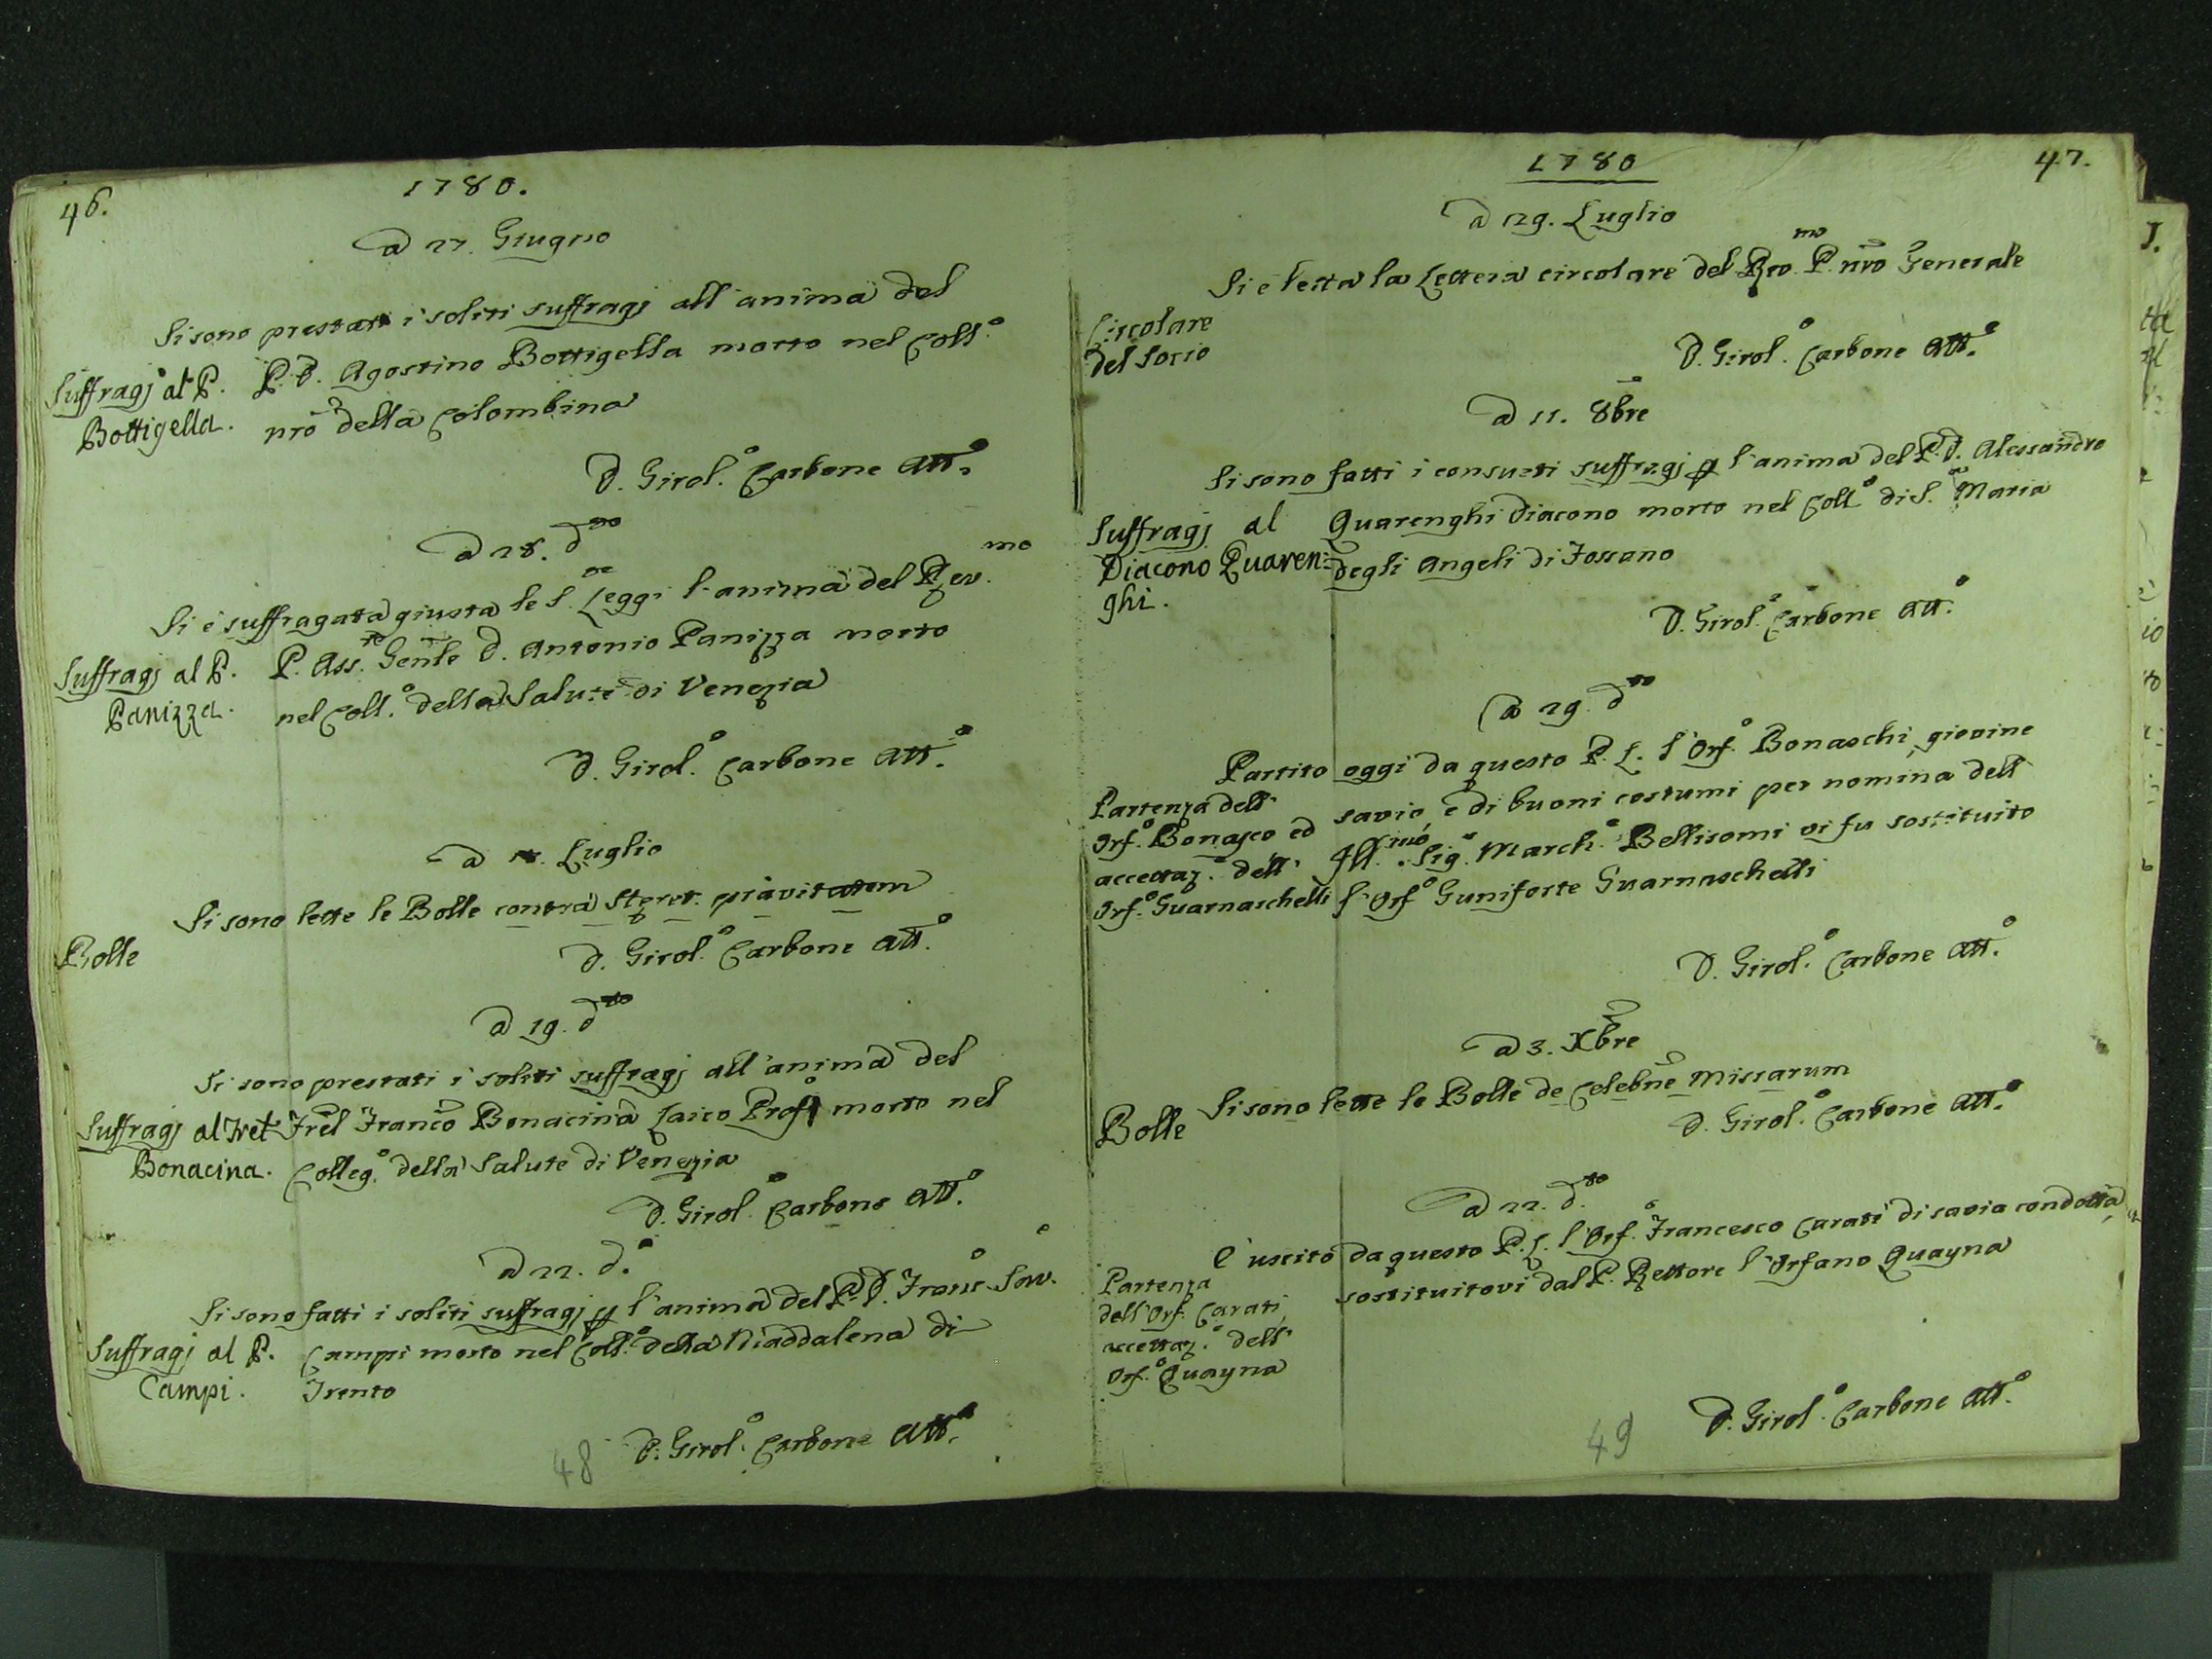 46.
1780.
a 27. Giugno
Si sono prestati i soliti suffragj all'anima del
Suffragj al P. P. D. Agostino Bottigella morto nel Coll.o
Bottigella. nro della Colombina
D. Girol.o Carbone Att.o
a 28. dto
Si è suffragata giusta le S. Leggi l'anima del Rev.mo
Suffragj al P. P. Ass.te Genle D. Antonio Panizza morto
Panizza. nel Coll.o della Salute di Venezia
D. Girol.o Carbone Att.o
a Luglio
Bolle Si sono lette le Bolle contra pravitatem
D. Girol.o Carbone Att.o
a 19. dto
Si sono prestati i soliti suffragj all'anima del
Suffragj al Fret Frel Franco Bonacina Laico Profo morto nel
Bonacina. Colleg.o della Salute di Venezia
D. Girol.o Carbone Att.o
a 22. d.o
Si sono fatti i soliti suffragj p l'anima del P. D. Franc.o Sav.o
Suffragj al P. Campi morto nel Coll.o della Maddalena di
Campi. Trento
D. Girol.o Carbone Att.o
48
47.
1780
a 29. Luglio
Si è letta la Lettera circolare del Rmo P. nro Generale
Circolare
del Socio
D. Girol.o Carbone Att.o
a 11. 8bre
Si sono fatti i consueti suffragj p l'anima del P. D. Alessandro
Suffragj al Quarenghi Diacono morto nel Coll.o di S. Maria
Diacono Quaren= degli Angeli di Fossano
ghi.
D. Girol.o Carbone Att.o
a 29. dto
Partito oggi da questo P. L. l'Orf.o Bonaschi, giovine
Partenza dell' savio, e di buoni costumi per nomina dell'
Orf.o Bonasco ed Ill.mo Sig.r March.e Bellisomi vi fu sostituito
accettaz.e dell' l'Orf.o Guniforte Guarnaschelli
Orf.o Guarnaschelli
D. Girol.o Carbone Att.o
a 3. Xbre
Bolle Si sono lette le Bolle de Celebne Missarum
D. Girol.o Carbone Att.o
a 22. dto
E' uscito da questo P. L. l'Orf.o Francesco Carati di savia condotta,
Partenza sostituitovi dal P. Rettore l'Orfano Quayna
dell'Orf. Carati,
accettaz.e dell'
Orf.o Quayna
D. Girol.o Carbone Att.o
49